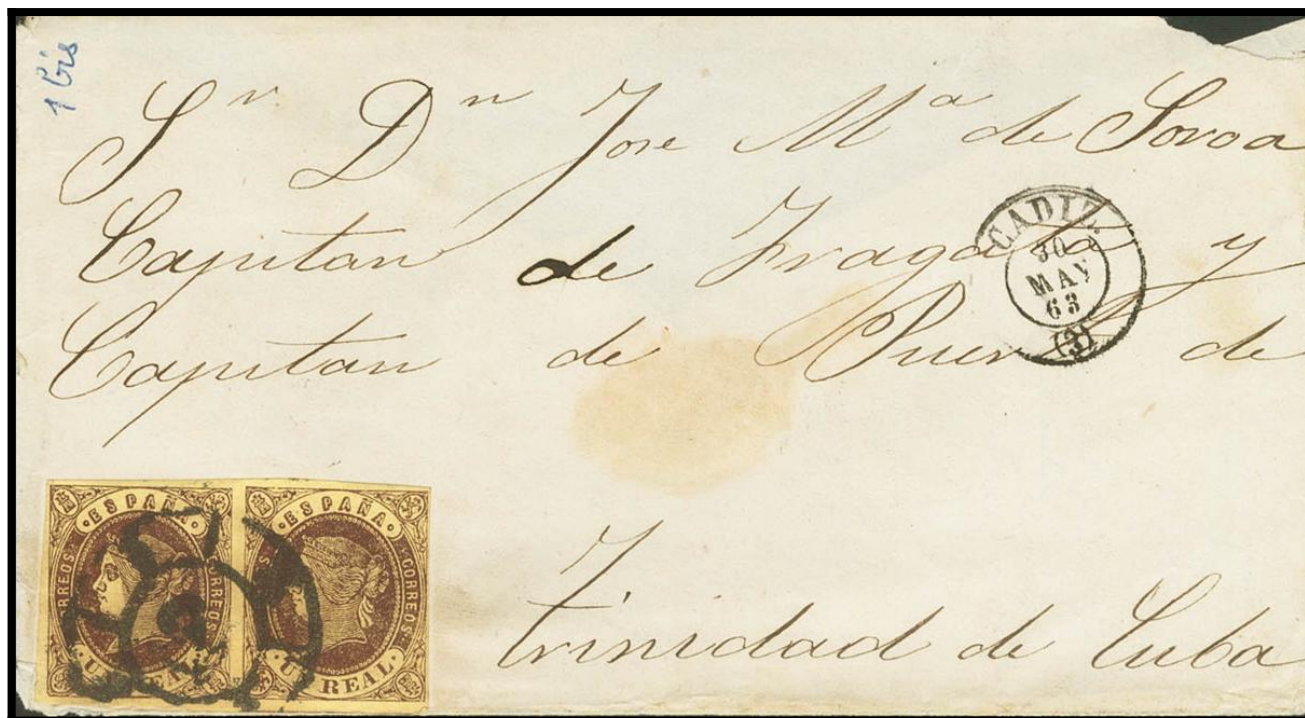 1 bis
Sr. Dn Jose Ma de Soroa
Capitan de Fragata y
Capitan de Puerto de
Trinidad de Cuba
CADIZ.
30
MAY
63
(3)
ESPAÑA
CORREOS
UN REAL
ESPAÑA
CORREOS
UN REAL